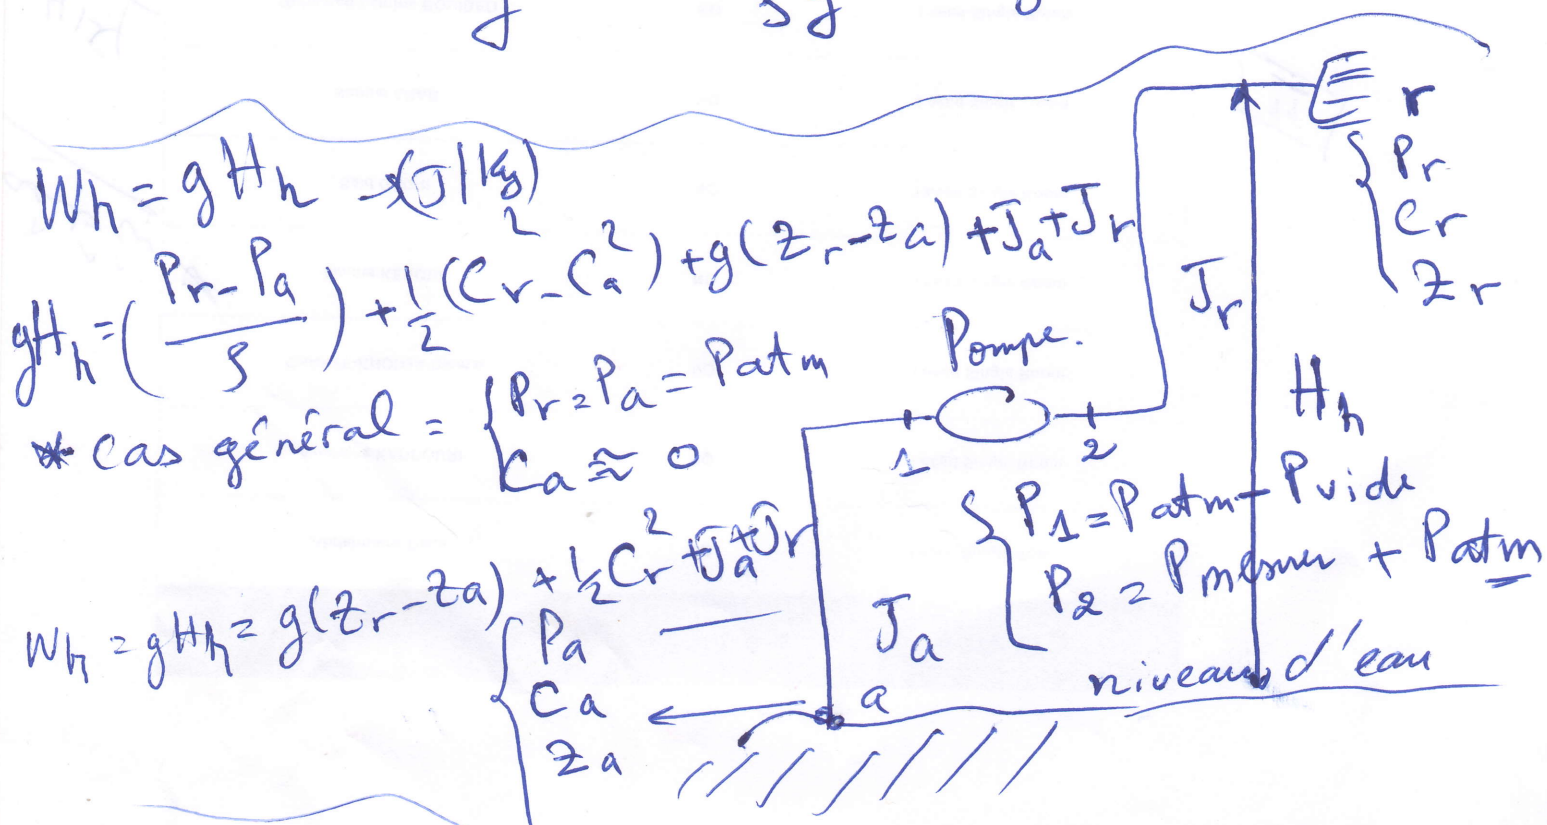 Wh = gHh → (J/kg)
gHh = (Pr - Pa / ρ) + 1/2 (Cr² - Ca²) + g(Zr - Za) + Ja + Jr
* cas général = { Pr = Pa = Patm
Ca ≈ 0
Wh = gHh = g(Zr - Za) + 1/2 Cr² + Ja + Jr
{ Pa
Ca
Za
Pompe.
1
2
{ P1 = Patm - Pvide
P2 = Pmesurer + Patm
Ja
a
niveau d'eau
Jr
Hh
r
{ Pr
Cr
Zr